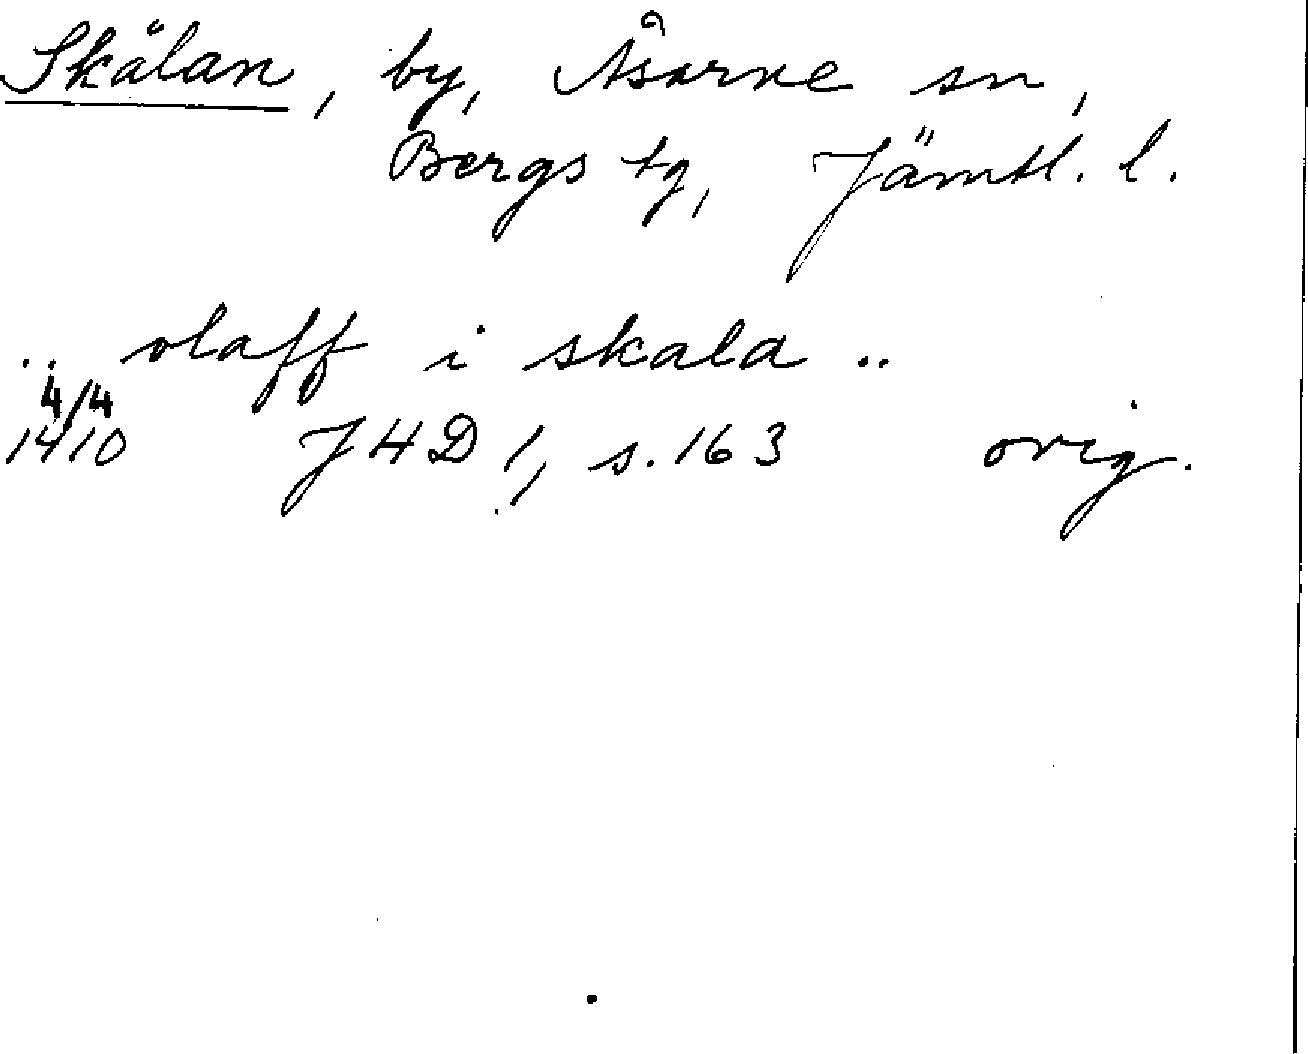 Skålan, by, Åsarne sn,
Bergs tg, Jämtl. l.
.. olaff i skala ..
4/4
1410 JHD 1, s.163 orig.